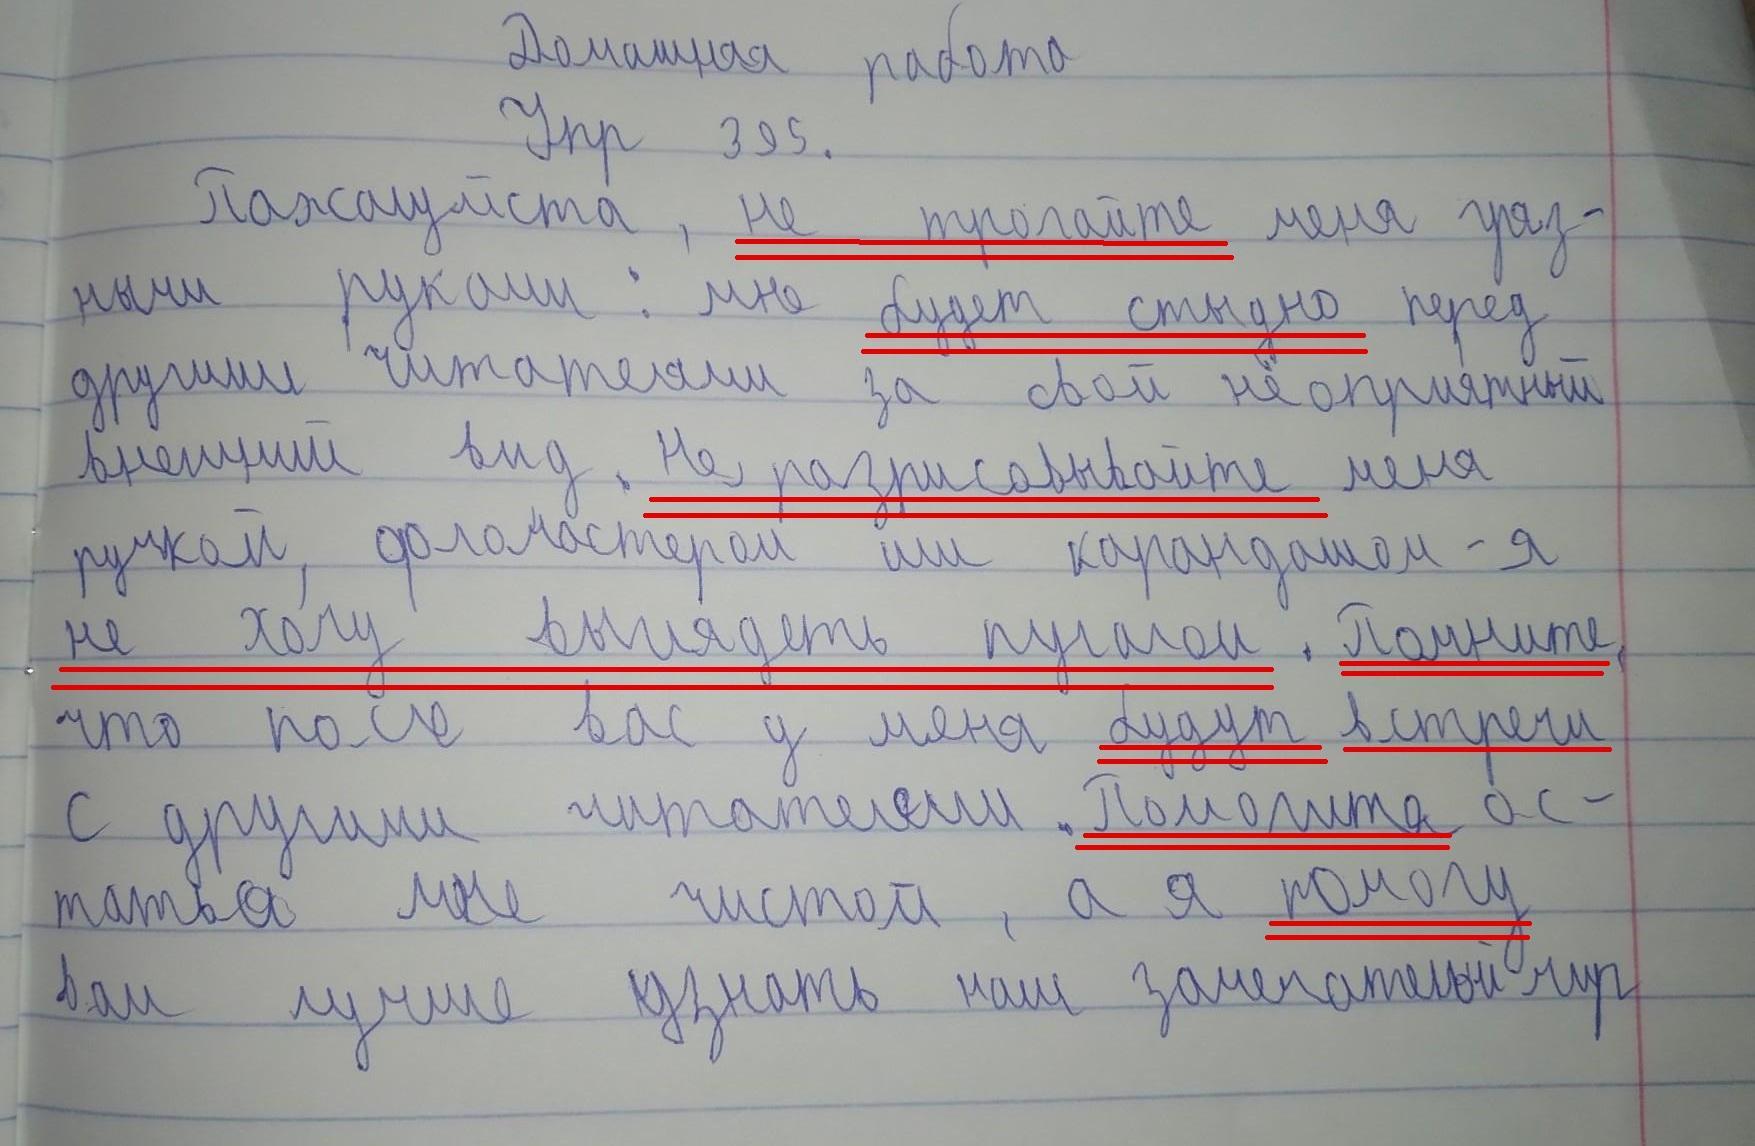 Домашняя работа
Упр 395.
Пажалуйста, не трогайте меня гряз-
ными руками: мне будет стыдно перед
другими читателями за свой неоприятный
внешний вид. Не разрисовывайте меня
ручкой, фломастером или карандашом - я
не хочу выглядеть пугалом. Помните,
что после вас у меня будут встречи
с другими читателями. Помогита ос-
таться мне чистой, а я помогу
вам лучше узнать наш замечательный мир